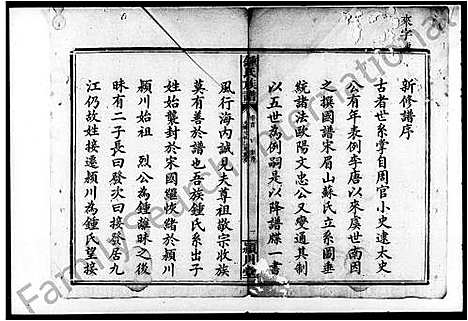 來字
新修譜序
古者世系掌自周官小史遠太史
公有年表例李唐以來虞世南因
之撰國譜宋眉山蘇氏立系圖垂
統諸法歐陽文忠公又變通具制
以五世為例嗣是以降譜牒一書
風行海內誠見夫尊祖敬宗收族
莫有善於譜也吾族鍾氏系出子
姓始龔封於宋國羅恢緒於潁川
潁川始祖 烈公為鍾離眛之後
眛有二子長曰發次曰接發居九
江仍故姓接遷潁川為鍾氏望接
鍾氏族譜
潁川堂
FamilySearch International